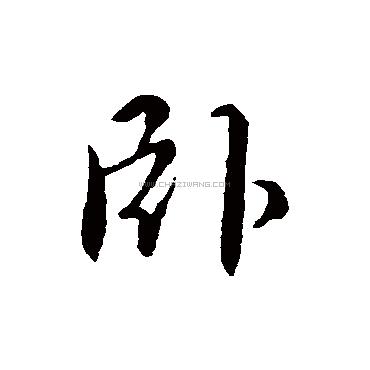 卧
WWW.CHAZIWANG.COM